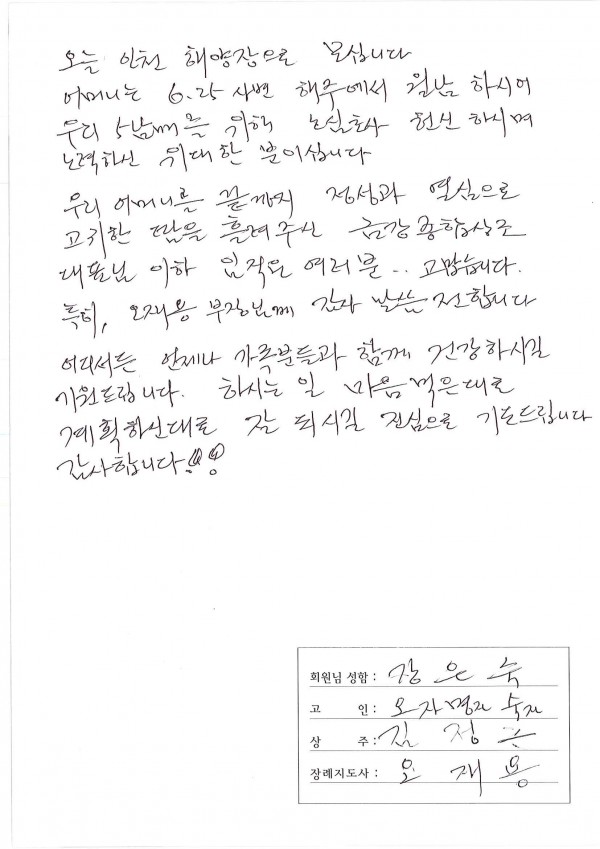 오늘 인천 해양장으로 모십니다
어머니는 6.25 사변 해주에서 월남 하시어
우리 5남매를 위해 노심초사 헌신 하시며
노력하신 위대한 분이십니다
우리 어머니를 끝까지 정성과 열심으로
고귀한 땀을 흘려주신 금강종합상조
대표님 이하 임직원 여러분.. 고맙습니다.
특히, 오재용 부장님께 감사 말씀 전합니다
어디서든 언제나 가족분들과 함께 건강하시길
기원드립니다. 하시는 일 마음먹은대로
계획하신대로 잘 되시길 진심으로 기도드립니다
감사합니다!!
회원님 성함 : 장은숙
고 인 : 오자 명자 숙자
상 주 : 김정
장례지도사 : 오재용